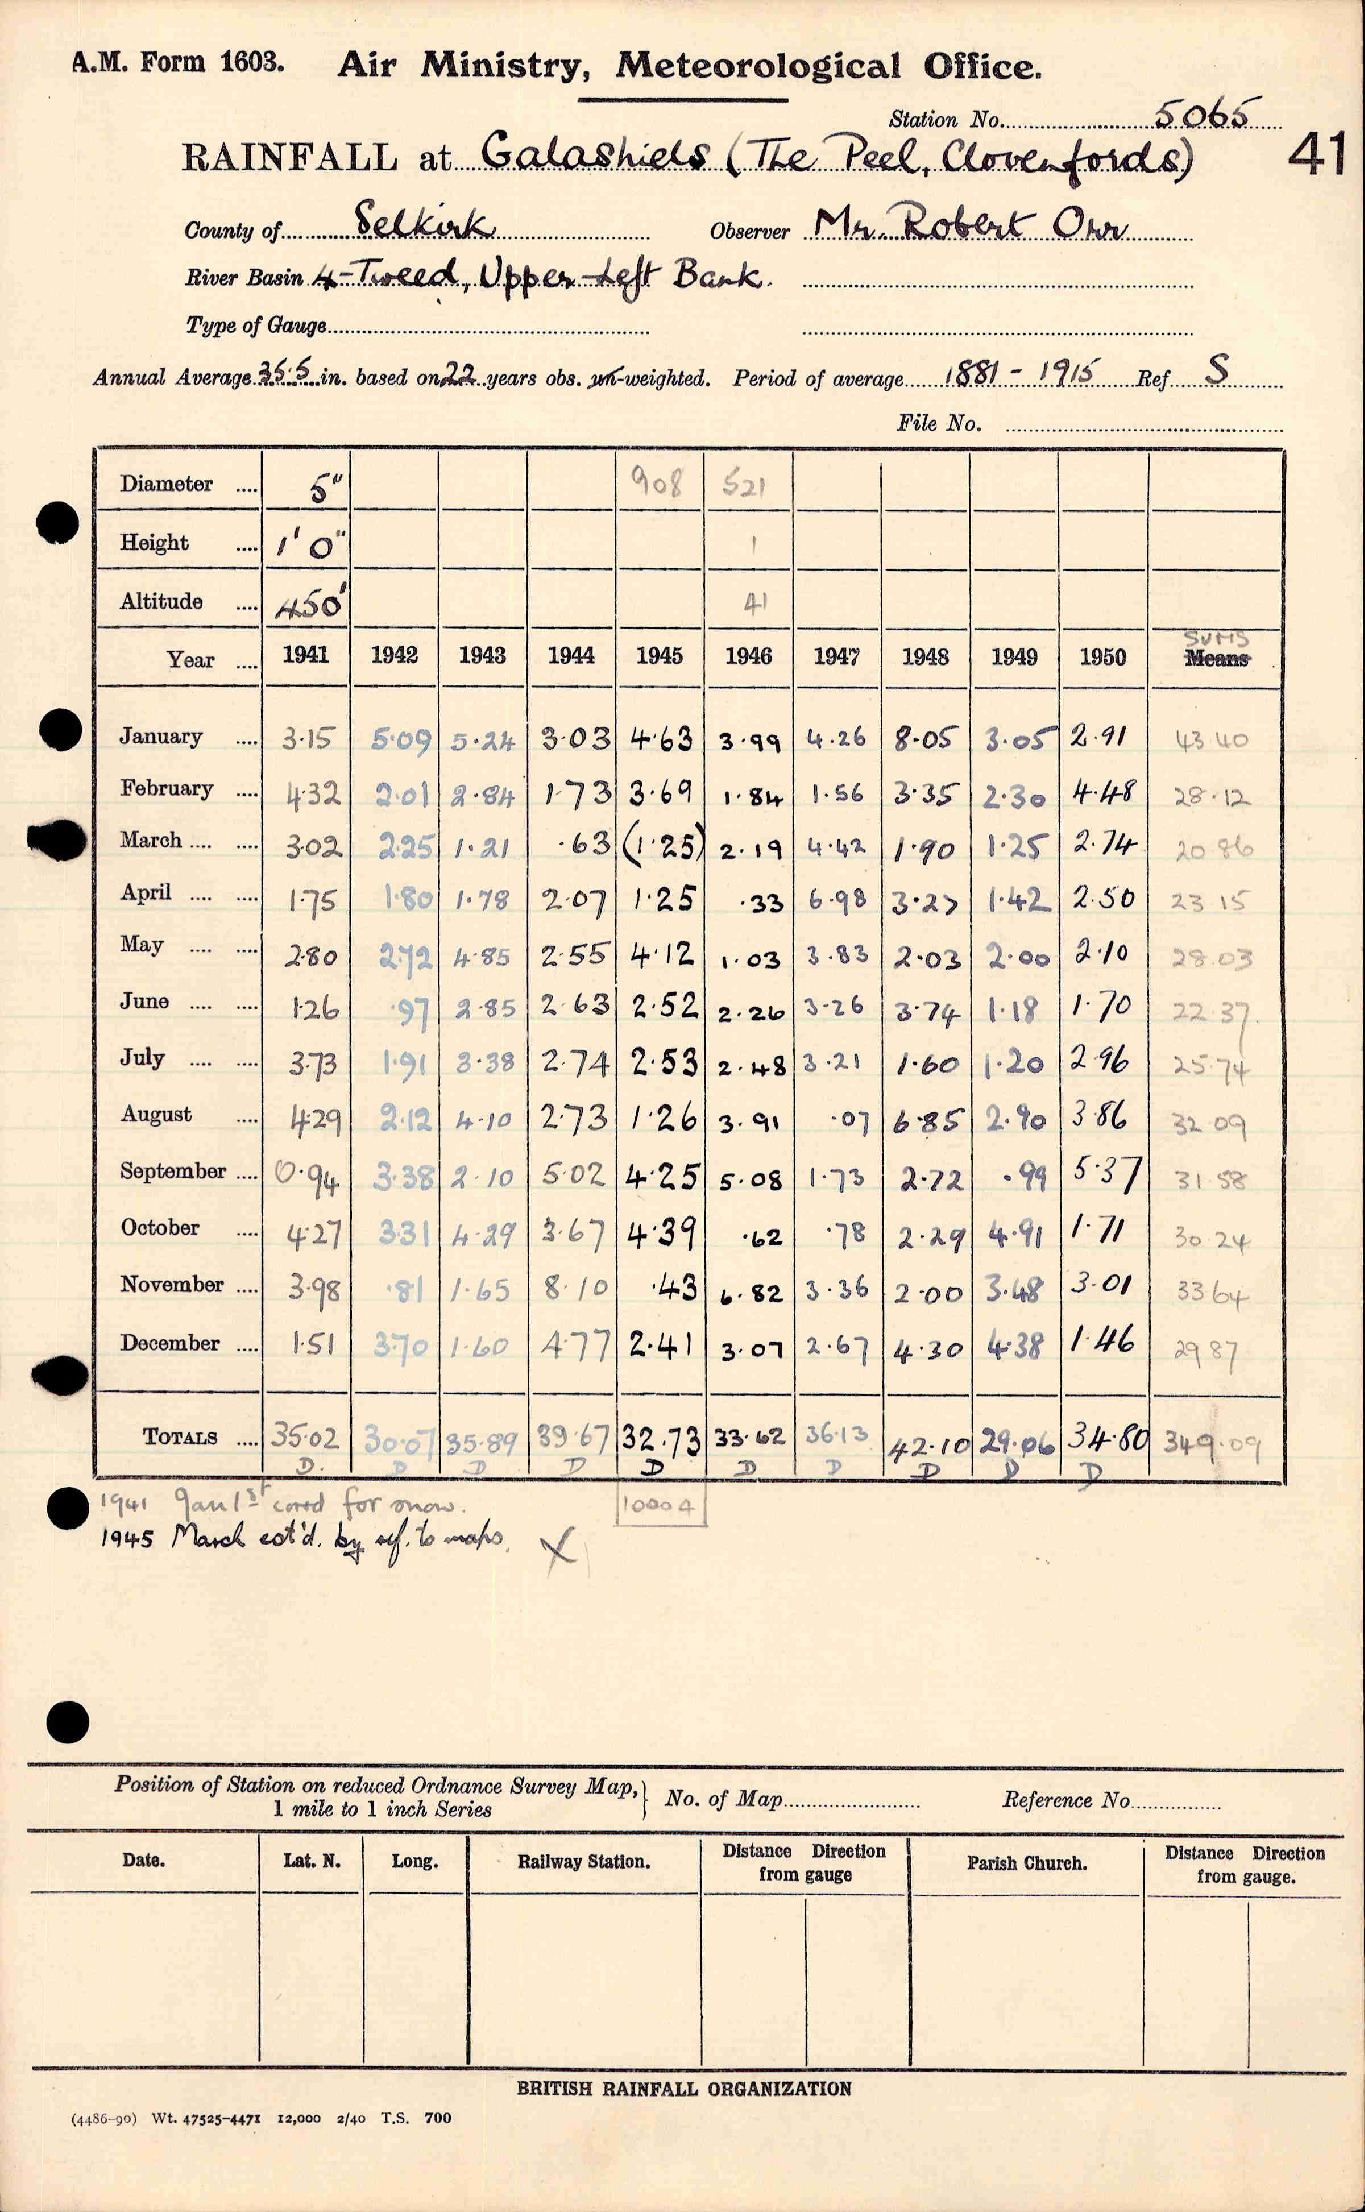 A.M. Form 1603. Air Ministry, Meteorological Office.
Station No. 5065
RAINFALL at Galashiels (The Peel, Clovenfords) 41
County of Selkirk Observer Mr. Robert Orr
River Basin 4-Tweed, Upper-Left Bank.
Type of Gauge
Annual Average 35.5 in. based on 22 years obs. un-weighted. Period of average 1881 - 1915 Ref S
File No.
Diameter .... 5" 908 521
Height .... 1' 0" 1
Altitude .... 450' 41
Sums
Year .... 1941 1942 1943 1944 1945 1946 1947 1948 1949 1950 Means
January .... 3.15 5.09 5.24 3.03 4.63 3.99 4.26 8.05 3.05 2.91 43.40
February .... 4.32 2.01 2.84 1.73 3.69 1.84 1.56 3.35 2.30 4.48 28.12
March .... .... 3.02 2.25 1.21 .63 (1.25) 2.19 4.42 1.90 1.25 2.74 20.86
April .... .... 1.75 1.80 1.78 2.07 1.25 .33 6.98 3.27 1.42 2.50 23.15
May .... .... 2.80 2.72 4.85 2.55 4.12 1.03 3.83 2.03 2.00 2.10 28.03
June .... .... 1.26 .97 2.85 2.63 2.52 2.26 3.26 3.74 1.18 1.70 22.37
July .... .... 3.73 1.91 3.38 2.74 2.53 2.48 3.21 1.60 1.20 2.96 25.74
August .... 4.29 2.12 4.10 2.73 1.26 3.91 .07 6.85 2.90 3.86 32.09
September .... 0.94 3.38 2.10 5.02 4.25 5.08 1.73 2.72 .99 5.37 31.58
October .... 4.27 3.31 4.29 3.67 4.39 .62 .78 2.29 4.91 1.71 30.24
November .... 3.98 .81 1.65 8.10 .43 6.82 3.36 2.00 3.48 3.01 33.64
December .... 1.51 3.70 1.60 4.77 2.41 3.07 2.67 4.30 4.38 1.46 29.87
TOTALS .... 35.02 30.07 35.89 39.67 32.73 33.62 36.13 42.10 29.06 34.80 349.09
D. D D D D D D D D D
1941 Jan 1st corrd for snow. 10004
1945 March est'd. by ref. to maps. X
Position of Station on reduced Ordnance Survey Map, } No. of Map Reference No.
1 mile to 1 inch Series
Date. Lat. N. Long. Railway Station. Distance Direction from gauge Parish Church. Distance Direction from gauge.
BRITISH RAINFALL ORGANIZATION
(4486-90) Wt. 47525-4471 12,000 2/40 T.S. 700